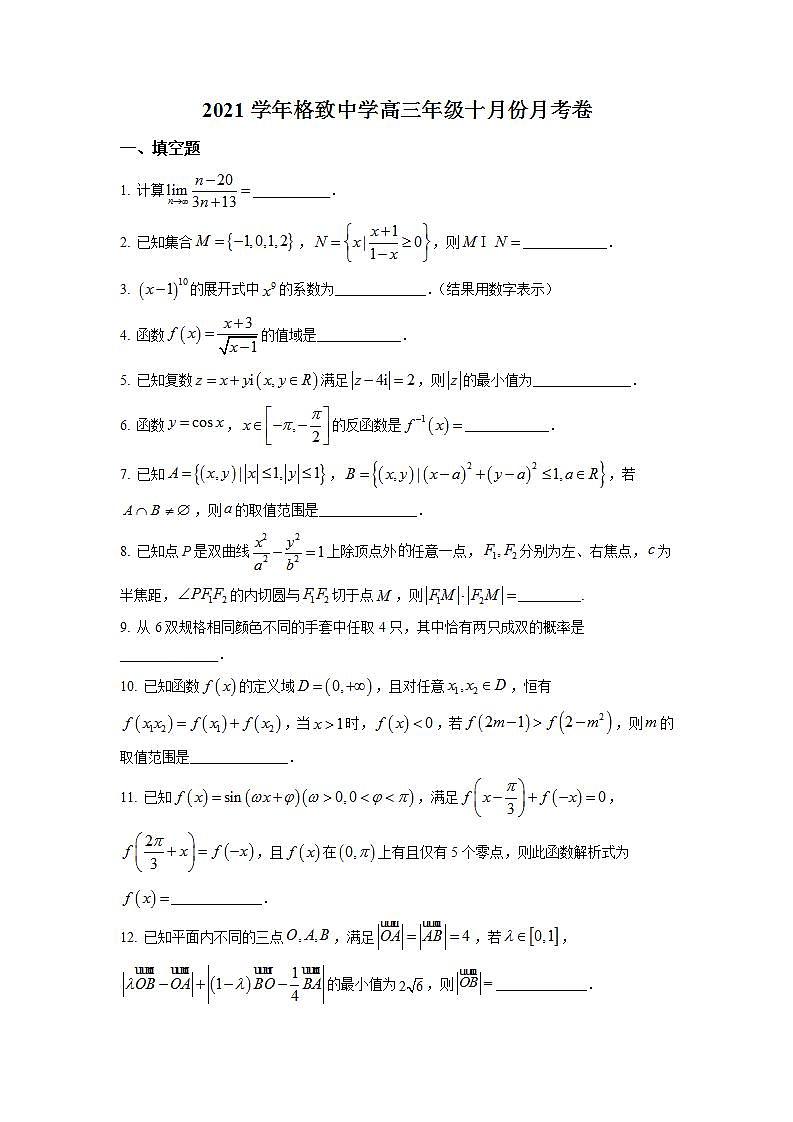 2021 学年格致中学高三年级十月份月考卷
一、填空题
1. 计算 $\lim_{n\to\infty}\frac{n-20}{3n+13}=$___________.
2. 已知集合 $M=\{-1,0,1,2\}$，$N=\left\{x|\frac{x+1}{1-x}\geq 0\right\}$，则 $M$ I $N=$____________.
3. $(x-1)^{10}$ 的展开式中 $x^9$ 的系数为_____________.（结果用数字表示）
4. 函数 $f(x)=\frac{x+3}{\sqrt{x-1}}$ 的值域是____________.
5. 已知复数 $z=x+yi(x,y\in R)$ 满足 $|z-4i|=2$，则 $|z|$ 的最小值为______________.
6. 函数 $y=\cos x$，$x\in\left[-\pi,-\frac{\pi}{2}\right]$ 的反函数是 $f^{-1}(x)=$____________.
7. 已知 $A=\{(x,y)||x|\leq 1,|y|\leq 1\}$，$B=\{(x,y)|(x-a)^2+(y-a)^2\leq 1,a\in R\}$，若
$A\cap B\neq\varnothing$，则 $a$ 的取值范围是______________.
8. 已知点 $P$ 是双曲线 $\frac{x^2}{a^2}-\frac{y^2}{b^2}=1$ 上除顶点外的任意一点，$F_1,F_2$ 分别为左、右焦点，$c$ 为
半焦距，$\angle PF_1F_2$ 的内切圆与 $F_1F_2$ 切于点 $M$，则 $|F_1M|\cdot|F_2M|=$_________.
9. 从 6 双规格相同颜色不同的手套中任取 4 只，其中恰有两只成双的概率是
______________.
10. 已知函数 $f(x)$ 的定义域 $D=(0,+\infty)$，且对任意 $x_1,x_2\in D$，恒有
$f(x_1x_2)=f(x_1)+f(x_2)$，当 $x>1$ 时，$f(x)<0$，若 $f(2m-1)>f(2-m^2)$，则 $m$ 的
取值范围是______________.
11. 已知 $f(x)=\sin(\omega x+\varphi)(\omega>0,0<\varphi<\pi)$，满足 $f\left(x-\frac{\pi}{3}\right)+f(-x)=0$，
$f\left(\frac{2\pi}{3}+x\right)=f(-x)$，且 $f(x)$ 在 $(0,\pi)$ 上有且仅有 5 个零点，则此函数解析式为
$f(x)=$_____________.
12. 已知平面内不同的三点 $O,A,B$，满足 $|\overrightarrow{OA}|=|\overrightarrow{AB}|=4$，若 $\lambda\in[0,1]$，
$|\lambda\overrightarrow{OB}-\overrightarrow{OA}|+\left|(1-\lambda)\overrightarrow{BO}-\frac{1}{4}\overrightarrow{BA}\right|$ 的最小值为 $2\sqrt{6}$，则 $|\overrightarrow{OB}|=$_____________.